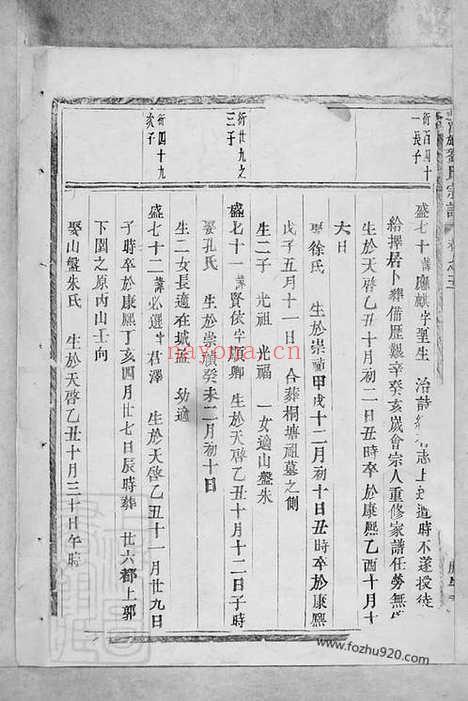 劉氏宗譜
衍百四十
一長子
盛七十 諱應麒字聖生 治詩 志上 遺時不遂授徒
給擇居卜葬備歷艱辛癸亥歲會宗人重修家譜任勞無
生於天啓乙丑十月初二日丑時卒於康熙乙酉十月十
六日
娶徐氏 生於崇禎甲戌十二月初十日丑時卒於康熙
戊子五月十一日 合葬桐塘祖墓之側
生二子 光祖 光福 一女適山盤朱
衍廿九之
三子
盛七十一 諱賢俵字順卿 生於天啓乙丑十月十二日子時
娶孔氏 生於崇禎癸未二月初十日
生二女長適在城孟 幼適
衍四十九
次子
盛七十二 諱必選字君澤 生於天啓乙丑十一月廿九日
子時卒於康熙丁亥四月廿七日辰時葬 廿六都上郭
下園之原丙山壬向
娶山盤朱氏 生於天啓乙丑十月三十日午時
nayona.cn
www.fozhu920.com